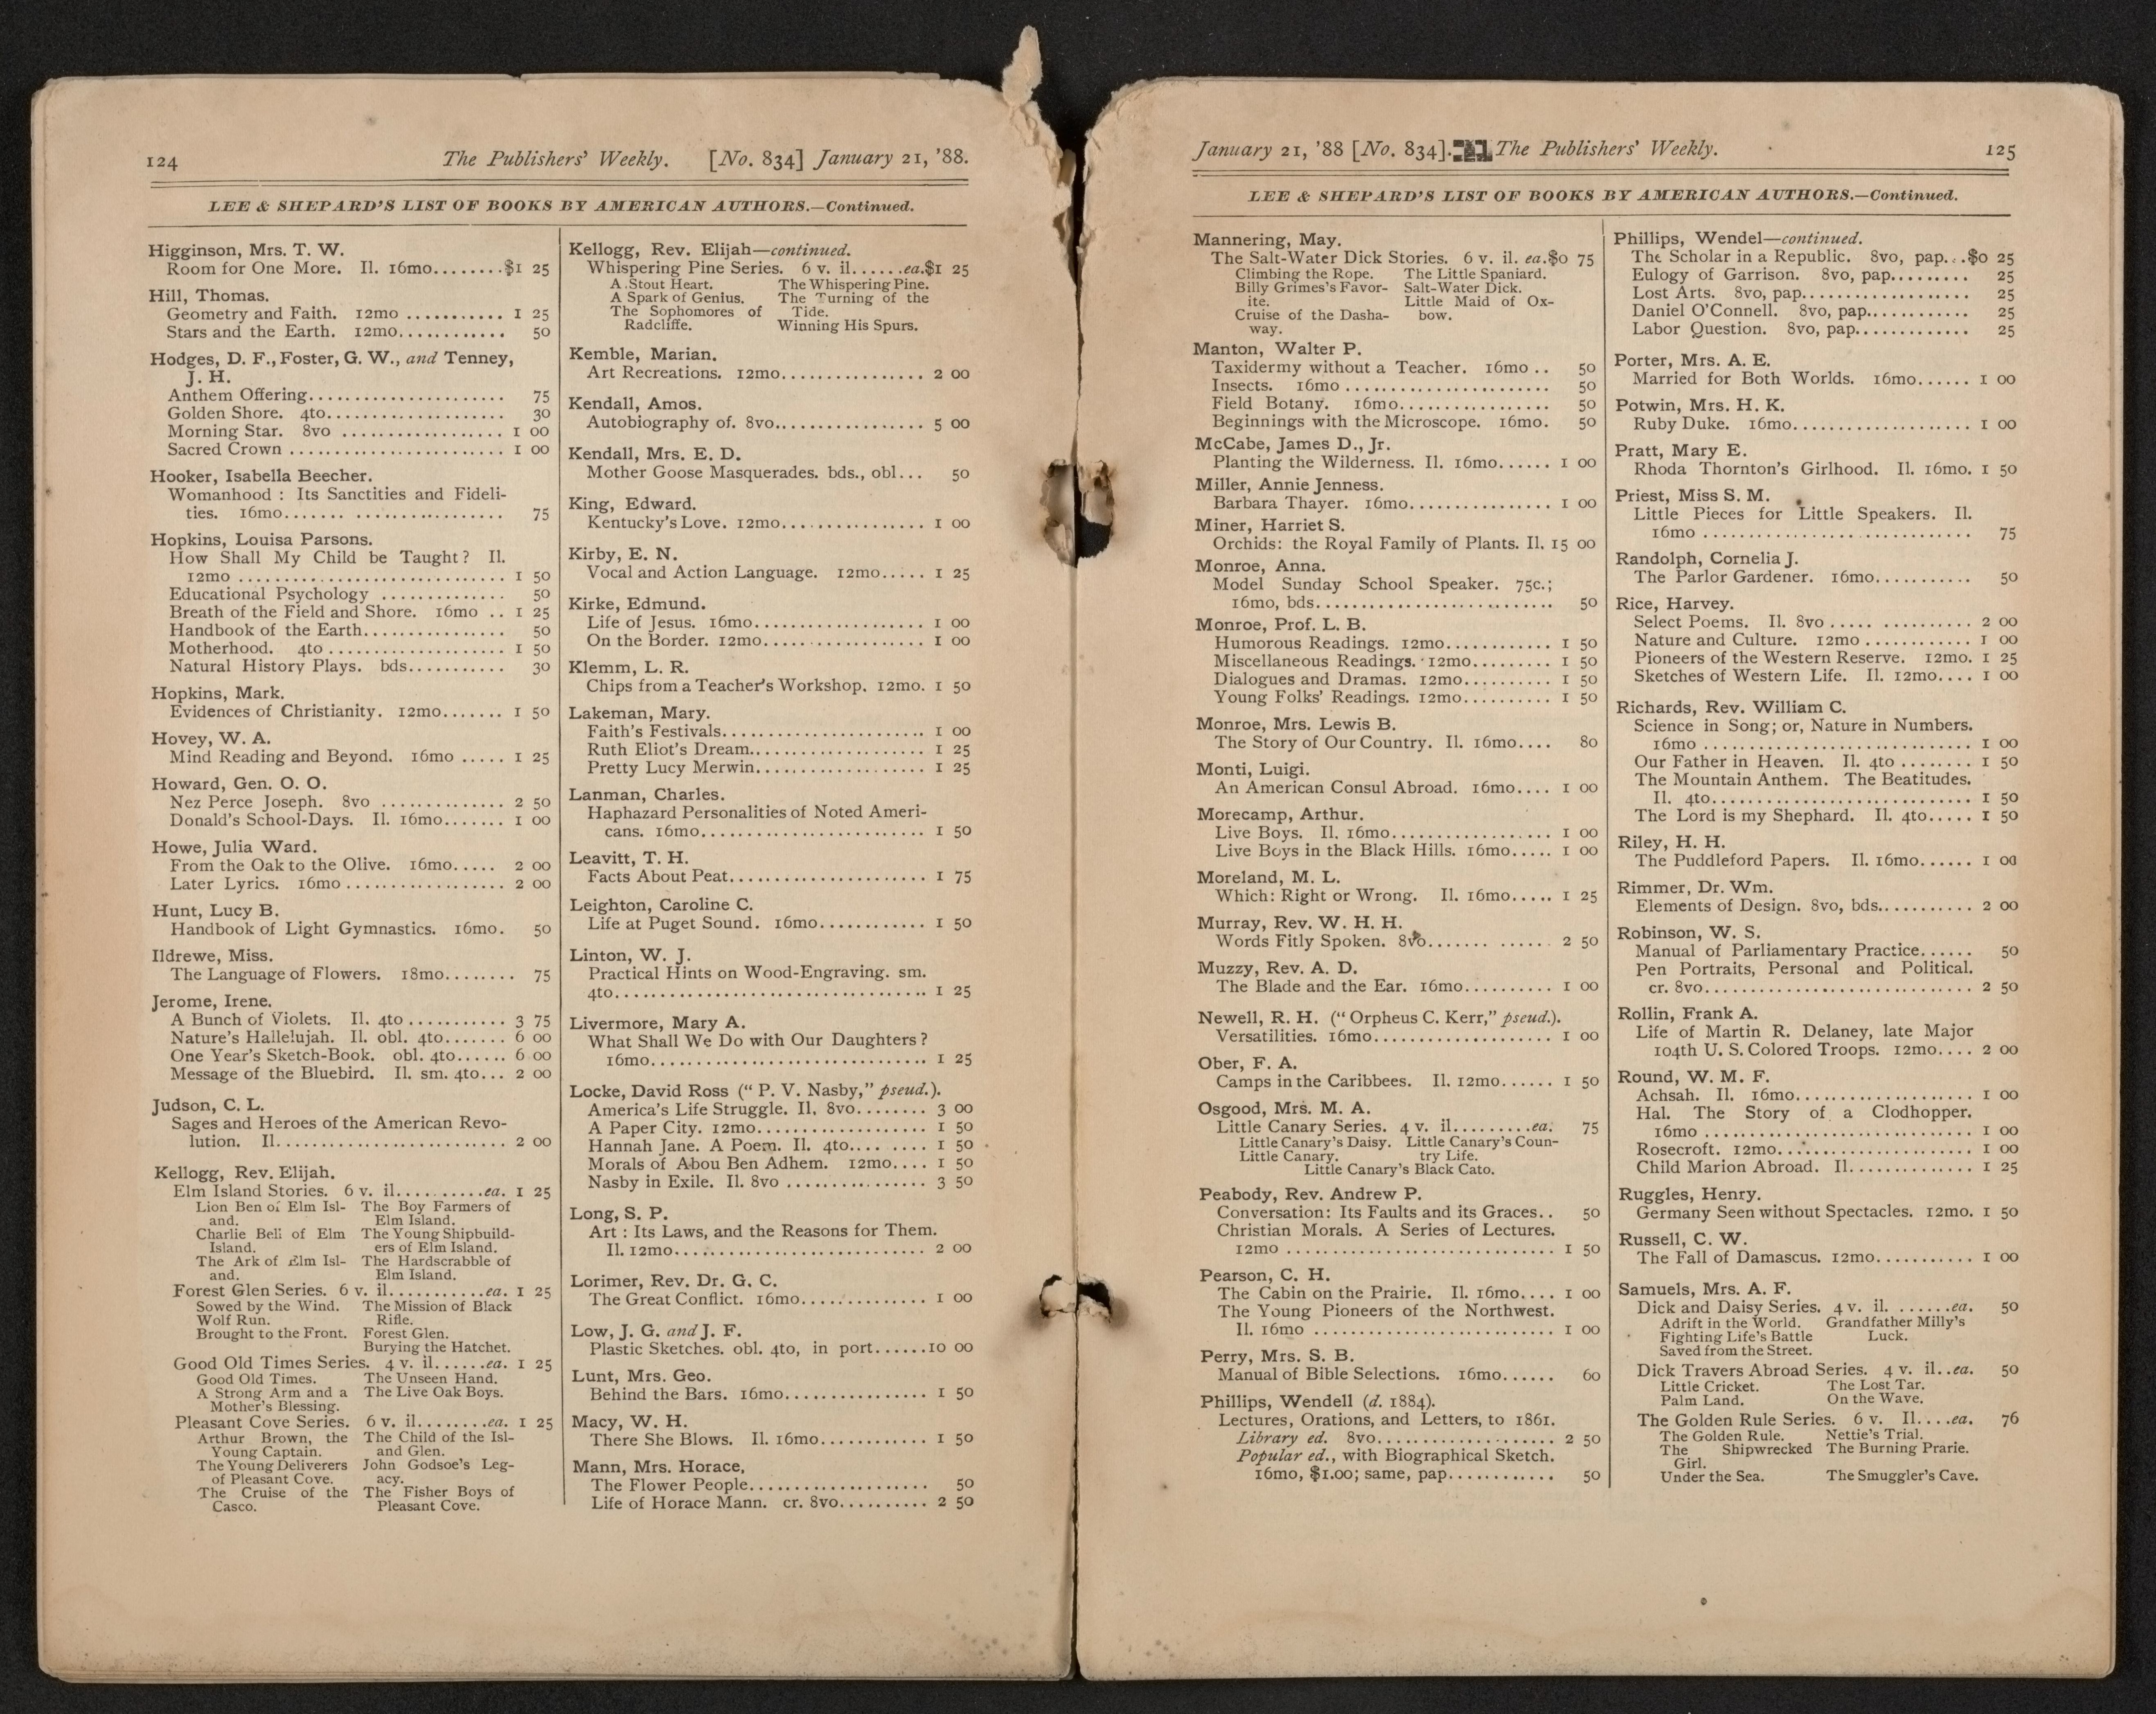 124 The Publishers' Weekly. [No. 834] January 21, '88.
LEE & SHEPARD'S LIST OF BOOKS BY AMERICAN AUTHORS.—Continued.
Higginson, Mrs. T. W.
Room for One More. Il. 16mo........$1 25
Hill, Thomas.
Geometry and Faith. 12mo ........... 1 25
Stars and the Earth. 12mo............ 50
Hodges, D. F., Foster, G. W., and Tenney,
J. H.
Anthem Offering...................... 75
Golden Shore. 4to.................... 30
Morning Star. 8vo .................. 1 00
Sacred Crown ........................ 1 00
Hooker, Isabella Beecher.
Womanhood : Its Sanctities and Fideli-
ties. 16mo....... ................. 75
Hopkins, Louisa Parsons.
How Shall My Child be Taught? Il.
12mo .............................. 1 50
Educational Psychology .............. 50
Breath of the Field and Shore. 16mo .. 1 25
Handbook of the Earth................ 50
Motherhood. 4to .................... 1 50
Natural History Plays. bds........... 30
Hopkins, Mark.
Evidences of Christianity. 12mo....... 1 50
Hovey, W. A.
Mind Reading and Beyond. 16mo ..... 1 25
Howard, Gen. O. O.
Nez Perce Joseph. 8vo .............. 2 50
Donald's School-Days. Il. 16mo....... 1 00
Howe, Julia Ward.
From the Oak to the Olive. 16mo..... 2 00
Later Lyrics. 16mo .................. 2 00
Hunt, Lucy B.
Handbook of Light Gymnastics. 16mo. 50
Ildrewe, Miss.
The Language of Flowers. 18mo........ 75
Jerome, Irene.
A Bunch of Violets. Il. 4to ........... 3 75
Nature's Hallelujah. Il. obl. 4to....... 6 00
One Year's Sketch-Book. obl. 4to...... 6 00
Message of the Bluebird. Il. sm. 4to... 2 00
Judson, C. L.
Sages and Heroes of the American Revo-
lution. Il.......................... 2 00
Kellogg, Rev. Elijah.
Elm Island Stories. 6 v. il..........ea. 1 25
Lion Ben of Elm Isl- The Boy Farmers of
and. Elm Island.
Charlie Bell of Elm The Young Shipbuild-
Island. ers of Elm Island.
The Ark of Elm Isl- The Hardscrabble of
and. Elm Island.
Forest Glen Series. 6 v. il...........ea. 1 25
Sowed by the Wind. The Mission of Black
Wolf Run. Rifle.
Brought to the Front. Forest Glen.
Burying the Hatchet.
Good Old Times Series. 4 v. il......ea. 1 25
Good Old Times. The Unseen Hand.
A Strong Arm and a The Live Oak Boys.
Mother's Blessing.
Pleasant Cove Series. 6 v. il........ea. 1 25
Arthur Brown, the The Child of the Isl-
Young Captain. and Glen.
The Young Deliverers John Godsoe's Leg-
of Pleasant Cove. acy.
The Cruise of the The Fisher Boys of
Casco. Pleasant Cove.
Kellogg, Rev. Elijah—continued.
Whispering Pine Series. 6 v. il......ea.$1 25
A Stout Heart. The Whispering Pine.
A Spark of Genius. The Turning of the
The Sophomores of Tide.
Radcliffe. Winning His Spurs.
Kemble, Marian.
Art Recreations. 12mo................ 2 00
Kendall, Amos.
Autobiography of. 8vo................. 5 00
Kendall, Mrs. E. D.
Mother Goose Masquerades. bds., obl... 50
King, Edward.
Kentucky's Love. 12mo................ 1 00
Kirby, E. N.
Vocal and Action Language. 12mo..... 1 25
Kirke, Edmund.
Life of Jesus. 16mo................... 1 00
On the Border. 12mo.................. 1 00
Klemm, L. R.
Chips from a Teacher's Workshop. 12mo. 1 50
Lakeman, Mary.
Faith's Festivals....................... 1 00
Ruth Eliot's Dream.................... 1 25
Pretty Lucy Merwin................... 1 25
Lanman, Charles.
Haphazard Personalities of Noted Ameri-
cans. 16mo........................ 1 50
Leavitt, T. H.
Facts About Peat...................... 1 75
Leighton, Caroline C.
Life at Puget Sound. 16mo............ 1 50
Linton, W. J.
Practical Hints on Wood-Engraving. sm.
4to................................. 1 25
Livermore, Mary A.
What Shall We Do with Our Daughters?
16mo.............................. 1 25
Locke, David Ross (“ P. V. Nasby,” pseud.).
America's Life Struggle. Il. 8vo........ 3 00
A Paper City. 12mo................... 1 50
Hannah Jane. A Poem. Il. 4to........ 1 50
Morals of Abou Ben Adhem. 12mo.... 1 50
Nasby in Exile. Il. 8vo ................ 3 50
Long, S. P.
Art : Its Laws, and the Reasons for Them.
Il. 12mo............................ 2 00
Lorimer, Rev. Dr. G. C.
The Great Conflict. 16mo.............. 1 00
Low, J. G. and J. F.
Plastic Sketches. obl. 4to, in port......10 00
Lunt, Mrs. Geo.
Behind the Bars. 16mo................ 1 50
Macy, W. H.
There She Blows. Il. 16mo............ 1 50
Mann, Mrs. Horace,
The Flower People.................... 50
Life of Horace Mann. cr. 8vo.......... 2 50
January 21, '88 [No. 834]. The Publishers' Weekly. 125
LEE & SHEPARD'S LIST OF BOOKS BY AMERICAN AUTHORS.—Continued.
Mannering, May.
The Salt-Water Dick Stories. 6 v. il. ea.$0 75
Climbing the Rope. The Little Spaniard.
Billy Grimes's Favor- Salt-Water Dick.
ite. Little Maid of Ox-
Cruise of the Dasha- bow.
way.
Manton, Walter P.
Taxidermy without a Teacher. 16mo .. 50
Insects. 16mo ....................... 50
Field Botany. 16mo................. 50
Beginnings with the Microscope. 16mo. 50
McCabe, James D., Jr.
Planting the Wilderness. Il. 16mo...... 1 00
Miller, Annie Jenness.
Barbara Thayer. 16mo................ 1 00
Miner, Harriet S.
Orchids: the Royal Family of Plants. Il. 15 00
Monroe, Anna.
Model Sunday School Speaker. 75c.;
16mo, bds.......................... 50
Monroe, Prof. L. B.
Humorous Readings. 12mo............ 1 50
Miscellaneous Readings. 12mo......... 1 50
Dialogues and Dramas. 12mo.......... 1 50
Young Folks' Readings. 12mo.......... 1 50
Monroe, Mrs. Lewis B.
The Story of Our Country. Il. 16mo.... 80
Monti, Luigi.
An American Consul Abroad. 16mo.... 1 00
Morecamp, Arthur.
Live Boys. Il. 16mo.................. 1 00
Live Boys in the Black Hills. 16mo..... 1 00
Moreland, M. L.
Which: Right or Wrong. Il. 16mo..... 1 25
Murray, Rev. W. H. H.
Words Fitly Spoken. 8vo....... ...... 2 50
Muzzy, Rev. A. D.
The Blade and the Ear. 16mo.......... 1 00
Newell, R. H. (“ Orpheus C. Kerr,” pseud.).
Versatilities. 16mo.................... 1 00
Ober, F. A.
Camps in the Caribbees. Il. 12mo...... 1 50
Osgood, Mrs. M. A.
Little Canary Series. 4 v. il.........ea. 75
Little Canary's Daisy. Little Canary's Coun-
Little Canary. try Life.
Little Canary's Black Cato.
Peabody, Rev. Andrew P.
Conversation: Its Faults and its Graces.. 50
Christian Morals. A Series of Lectures.
12mo .............................. 1 50
Pearson, C. H.
The Cabin on the Prairie. Il. 16mo.... 1 00
The Young Pioneers of the Northwest.
Il. 16mo ........................... 1 00
Perry, Mrs. S. B.
Manual of Bible Selections. 16mo...... 60
Phillips, Wendell (d. 1884).
Lectures, Orations, and Letters, to 1861.
Library ed. 8vo.................... 2 50
Popular ed., with Biographical Sketch.
16mo, $1.00; same, pap............ 50
Phillips, Wendel—continued.
The Scholar in a Republic. 8vo, pap...$0 25
Eulogy of Garrison. 8vo, pap......... 25
Lost Arts. 8vo, pap................... 25
Daniel O'Connell. 8vo, pap............ 25
Labor Question. 8vo, pap............. 25
Porter, Mrs. A. E.
Married for Both Worlds. 16mo...... 1 00
Potwin, Mrs. H. K.
Ruby Duke. 16mo.................... 1 00
Pratt, Mary E.
Rhoda Thornton's Girlhood. Il. 16mo. 1 50
Priest, Miss S. M.
Little Pieces for Little Speakers. Il.
16mo .............................. 75
Randolph, Cornelia J.
The Parlor Gardener. 16mo........... 50
Rice, Harvey.
Select Poems. Il. 8vo ..... .......... 2 00
Nature and Culture. 12mo ............ 1 00
Pioneers of the Western Reserve. 12mo. 1 25
Sketches of Western Life. Il. 12mo.... 1 00
Richards, Rev. William C.
Science in Song; or, Nature in Numbers.
16mo .............................. 1 00
Our Father in Heaven. Il. 4to ........ 1 50
The Mountain Anthem. The Beatitudes.
Il. 4to............................. 1 50
The Lord is my Shephard. Il. 4to..... 1 50
Riley, H. H.
The Puddleford Papers. Il. 16mo...... 1 00
Rimmer, Dr. Wm.
Elements of Design. 8vo, bds........... 2 00
Robinson, W. S.
Manual of Parliamentary Practice...... 50
Pen Portraits, Personal and Political.
cr. 8vo............................. 2 50
Rollin, Frank A.
Life of Martin R. Delaney, late Major
104th U. S. Colored Troops. 12mo.... 2 00
Round, W. M. F.
Achsah. Il. 16mo.................... 1 00
Hal. The Story of a Clodhopper.
16mo .............................. 1 00
Rosecroft. 12mo...................... 1 00
Child Marion Abroad. Il.............. 1 25
Ruggles, Henry.
Germany Seen without Spectacles. 12mo. 1 50
Russell, C. W.
The Fall of Damascus. 12mo........... 1 00
Samuels, Mrs. A. F.
Dick and Daisy Series. 4 v. il. ......ea. 50
Adrift in the World. Grandfather Milly's
Fighting Life's Battle Luck.
Saved from the Street.
Dick Travers Abroad Series. 4 v. il..ea. 50
Little Cricket. The Lost Tar.
Palm Land. On the Wave.
The Golden Rule Series. 6 v. Il....ea. 76
The Golden Rule. Nettie's Trial.
The Shipwrecked The Burning Prarie.
Girl.
Under the Sea. The Smuggler's Cave.